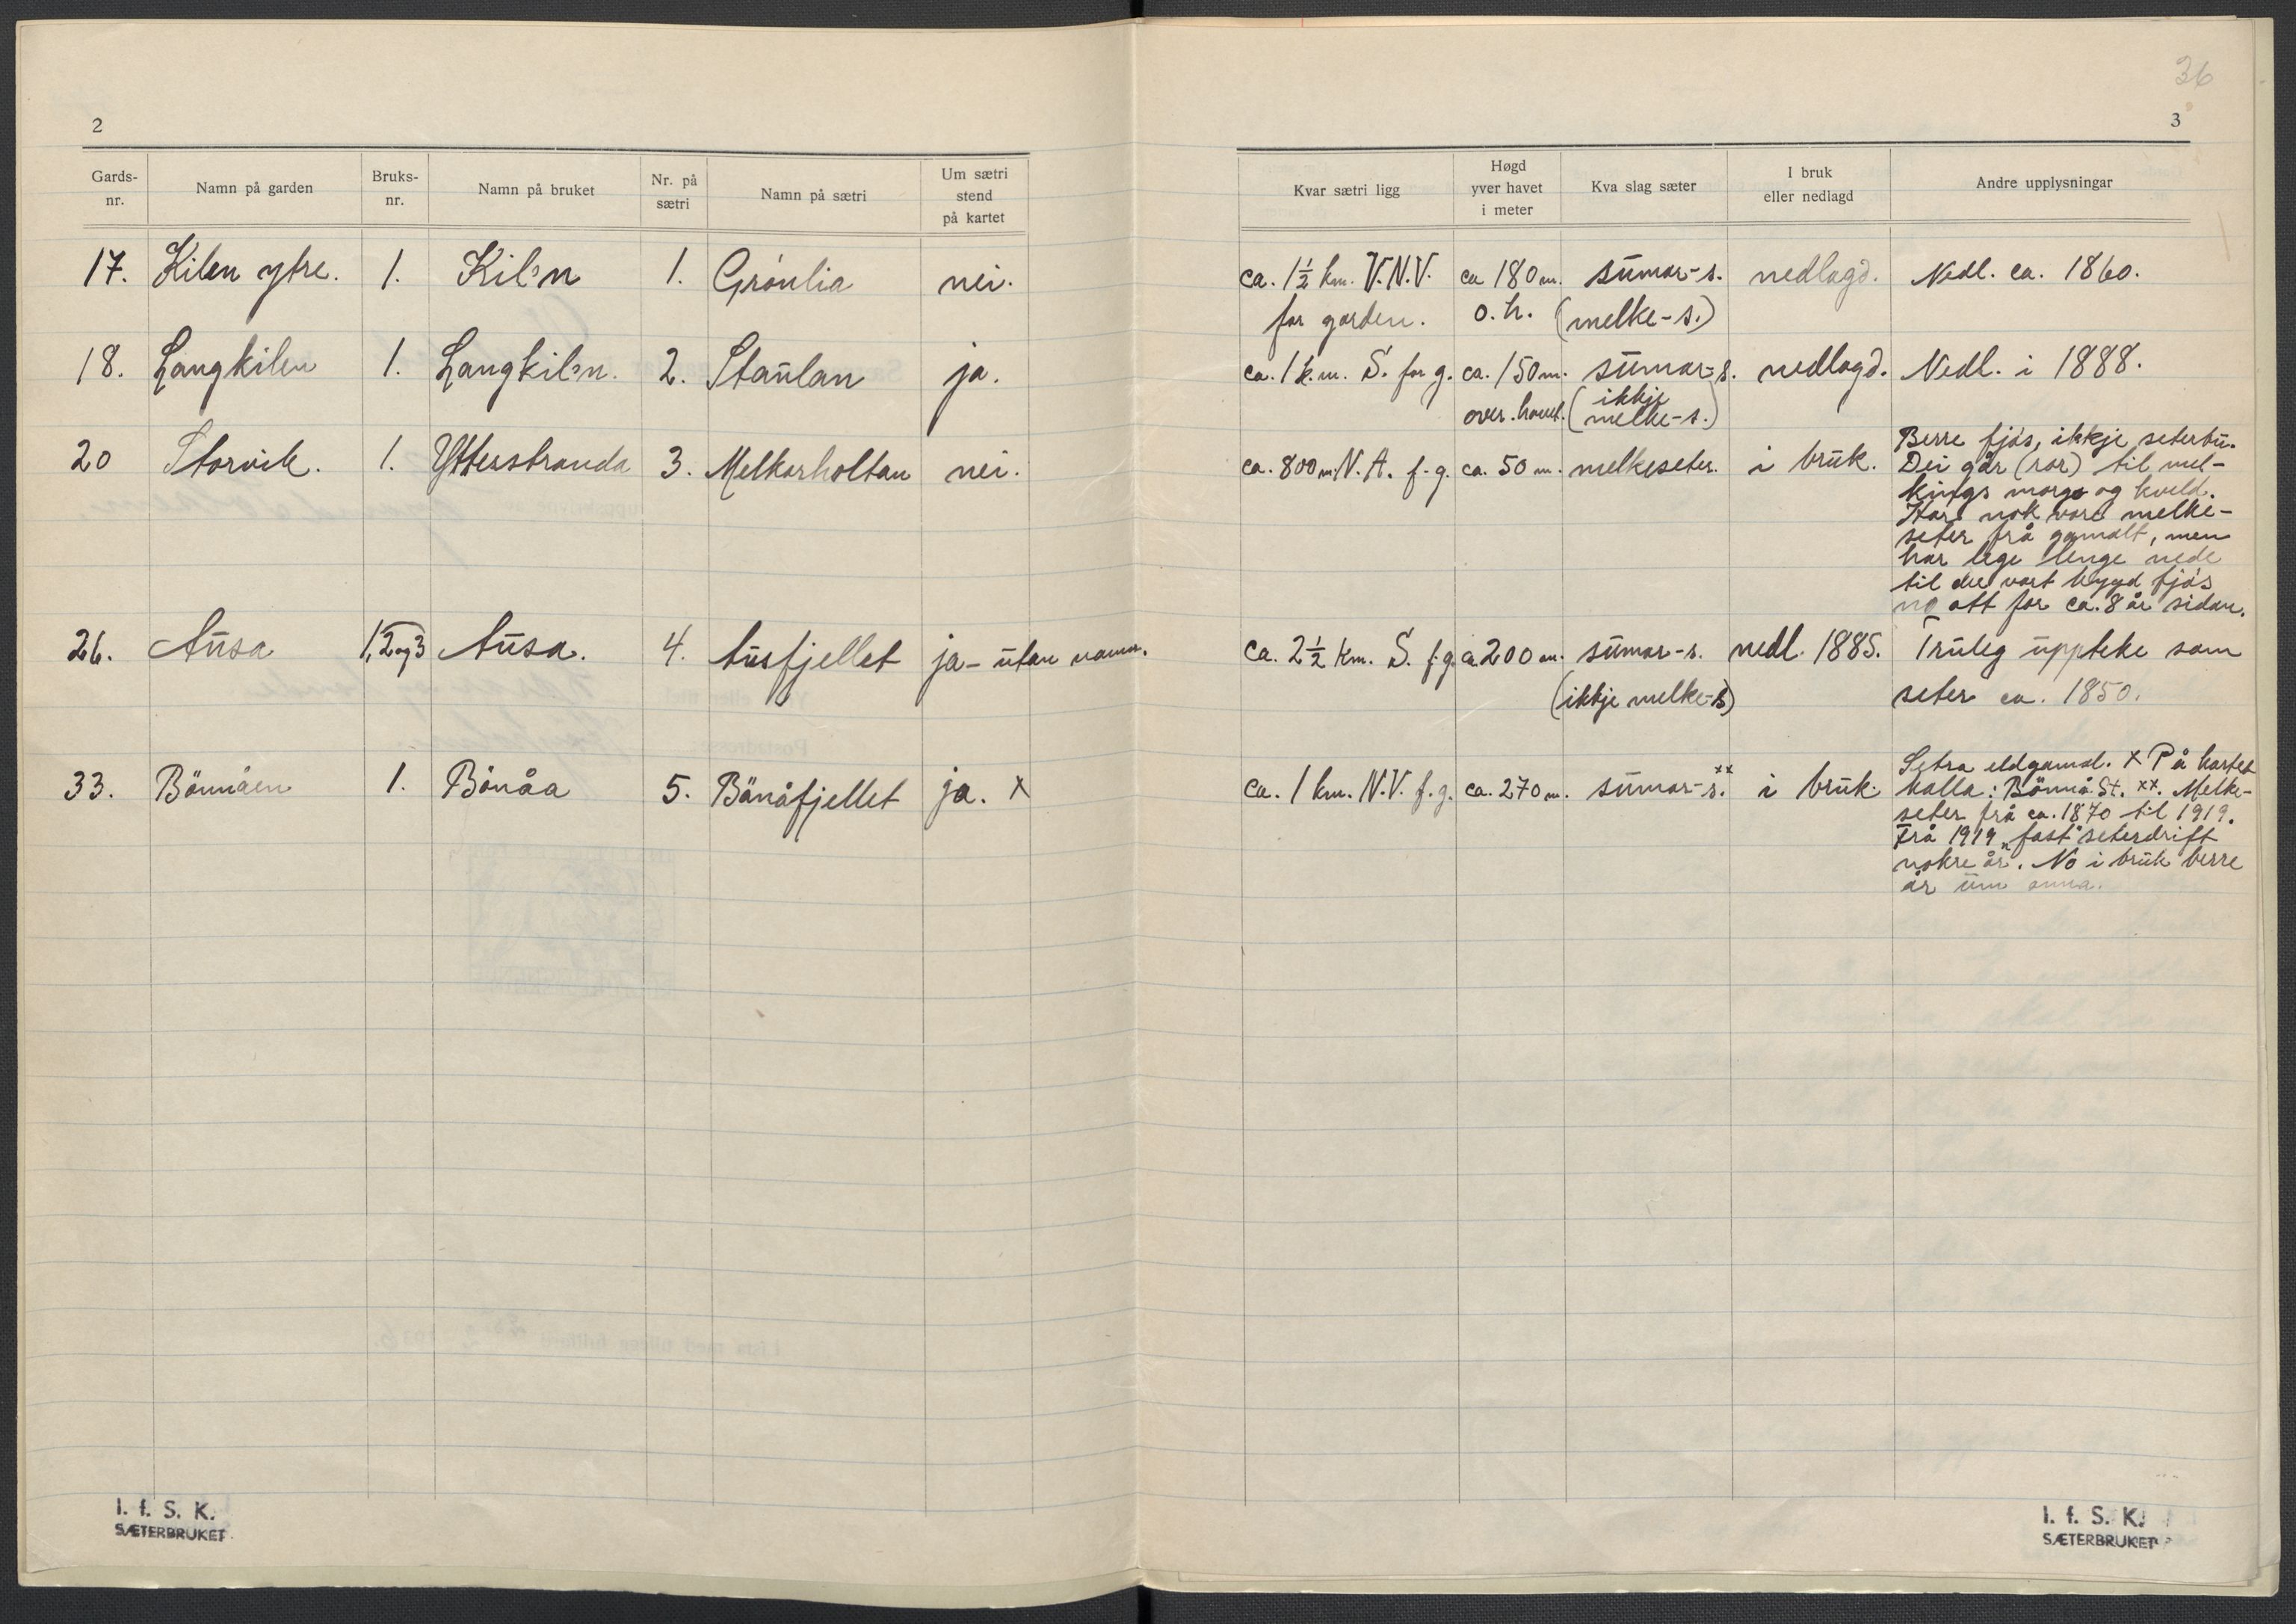 36
2
3
Gards-nr. Namn på garden Bruks-nr. Namn på bruket Nr. på sætri Namn på sætri Um sætri stend på kartet Kvar sætri ligg Høgd yver havet i meter Kva slag sæter I bruk eller nedlagd Andre upplysningar
17. Kilen ytre. 1. Kil'n 1. Grönlia nei. ca. 1½ km. V.N.V. ca 180 m. sumar-s. nedlagd. Nedl. ca. 1860.
for garden. o.h. (melke-s.)
18. Langkilen 1. Langkil'n. 2. Staulan ja. ca. 1 k.m. S. for g. ca. 150 m. sumar-s. nedlagd. Nedl. i 1888.
over havet. (ikkje melke-s.)
20 Storvik. 1. Ytterstranda 3. Melkarholtan nei. ca. 800 m. N.A. f.g. ca. 50 m. melkeseter. i bruk. Berre fjøs, ikkje seterbu.
Dei går (ror) til mel-
kings morgo og kveld.
Har nok vore melke-
seter frå gamalt, men
har lege lenge nede
til der vart bygd fjøs
no att for ca. 8 år sidan.
26. Ausa 1, 2 og 3 Ausa. 4. Ausfjellet ja - utan namn. ca. 2½ km. S. f.g. ca 200 m. sumar-s. nedl. 1885. Truleg uppteke som
(ikkje melke-s) seter ca. 1850.
33. Bönnåen 1. Bönåa 5. Bönåfjellet ja. x ca. 1 km. N.V. f.g. ca. 270 m. sumar-s. xx i bruk. Setra eldgamal. x På kartet
kalla: Bönnå St. xx. Melke-
seter frå ca. 1870 til 1919.
Frå 1919 „fast" seterdrift
nokre år. No i bruk berre
år um anna.
I. f. S. K.
SÆTERBRUKET
I. f. S. K.
SÆTERBRUKET